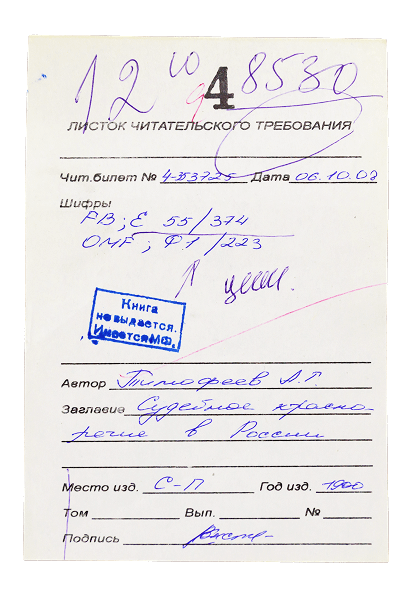 12 10 4 8530
9
ЛИСТОК ЧИТАТЕЛЬСКОГО ТРЕБОВАНИЯ
Чит.билет № 4-53725 Дата 06.10.02
Шифры
РВ; Е 55/374
OMF; Ф1/223
Книга
не выдается.
Имеется МФ.
Автор Тимофеев А.Г.
Заглавие Судебное красно-
речие в России
Место изд. С-П Год изд. 1900
Том Вып. №
Подпись